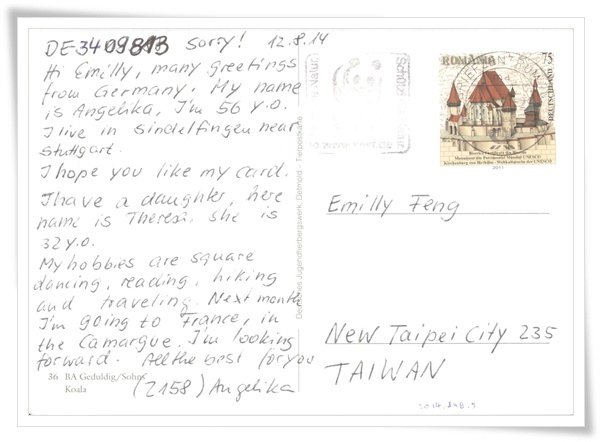 DE-3409813 sorry! 12.8.14
Hi Emilly, many greetings
from Germany. My name
is Angelika, I'm 56 y.o.
I live in Sindelfingen near
Stuttgart.
I hope you like my card.
I have a daughter, here
name is Theresa, she is
32 y.o.
My hobbies are square
dancing, reading, hiking
and traveling. Next month
I'm going to France, in
the Camargue. I'm looking
forward. All the best for you
(2158) Angelika
36 BA Geduldig/Sohns
Koala
Deutsches Jugendherbergswerk, Detmold - Tierpostkarte
ROMÂNIA 75
BISERICI FORTIFICATE
Biserica Fortificată din Biertan
Monument din Patrimoniul Mondial UNESCO
Kirchenburg von Birthälm - Weltkulturerbe der UNESCO
2011
Emilly Feng
New Taipei City 235
TAIWAN